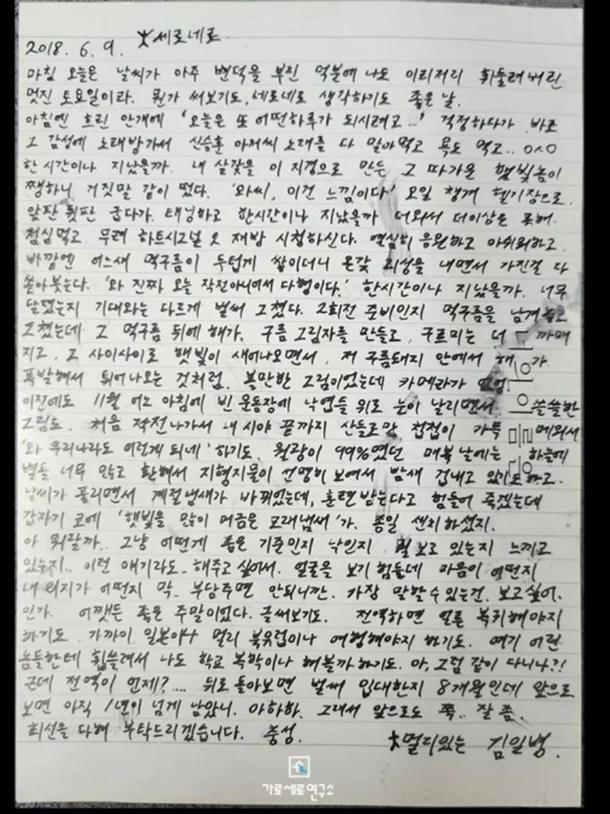 2018. 6. 9. 세로네로
마침 오늘은 날씨가 아주 변덕을 부린 덕분에 나도 이리저리 휘둘려버린
멋진 토요일이라. 뭔가 써보기도, 네로네로 생각하기도 좋은 날.
아침엔 흐린 안개에 '오늘은 또 어떤하루가 되시려고...' 걱정하다가 바로
그 감성에 노래방가서 신승훈 아저씨 노래를 다 말아먹고 욕도 먹고.. 0ㅅ0
한시간이나 지났을까. 내 살갗을 이 지경으로 만든 그 따가운 햇빛놈이
쨍하니 거짓말 같이 떴다. '와씨, 이건 느낌이다' 오일 챙겨 헬기장으로.
앞판 뒷판 굽다가. 태닝하고 한시간이나 지났을까 더워서 더이상은 못해.
점심먹고 무려 하트시그널 2 재방 시청하신다. 열심히 응원하고 아쉬워하고.
바깥엔 어느새 먹구름이 두텁게 쌓이더니 온갖 괴성을 내면서 가진걸 다
쏟아붓는다. '와 진짜 오늘 작전아니어서 다행이다.' 한시간이나 지났을까. 너무
달랬는지 기대와는 다르게 벌써 그쳤다. 2회전 준비인지 먹구름을 남겨놓고
그쳤는데 그 먹구름 뒤에 해가. 구름 그림자를 만들고, 구르미는 더 까매
지고, 그 사이사이로 햇빛이 새어나오면서, 저 구름돼지 안에서 해 가
폭발해서 튀어나오는 것처럼. 볼만한 그림이었는데 카메라가 없었
이전에도 11월 어느 아침에 빈 운동장에 낙엽들 위로 눈이 날리면서 쓸쓸한
그림도. 처음 작전나가서 내 시야 끝까지 산들로만 첩첩이 가득 메워서
'와 우리나라도 이렇게 되네' 하기도. 월광이 99%였던 매복날에는 하늘에
별들 너무 많고 환해서 지형지물이 선명히 보여서 밤새 겁내고 있기도하고.
날씨가 풀리면서 계절냄새가 바뀌었는데, 훈련받는다고 힘들어 죽겠는데
갑자기 코에 '햇빛을 많이 머금은 모래냄새'가. 종일 센치하셨지.
아 뭐랄까.. 그냥 어떻게 좁은 기준인지 낙인지 뭘 보고 있는지 느끼고
있는지.. 이런 얘기라도. 해주고 싶어서. 얼굴을 보기 힘든데 마음이 어떤지
내 의지가 어떤지 막. 부담주면 안되니깐. 가장 말할수 있는건. 보고싶어.
인가. 어쨌든 좋은 주말이었다. 글써보기도. 전역하면 얼른 복귀해야지
하기도. 가까이 일본이나 멀리 북유럽이나 여행해야지 하기도. 여기 어린
놈들한테 휩쓸려서 나도 학교 복학이나 해볼까하기도. 아, 그럼 같이 다니나?!
근데 전역이 언제?.... 뒤로 돌아보면 벌써 입대한지 8개월인데 앞으로
보면 아직 1년이 넘게 남았니. 아하하. 그래서 앞으로도 쭉.. 잘 좀.
최선을 다해 부탁드리겠습니다. 충성.
멀리있는 김일병.
가로세로연구소